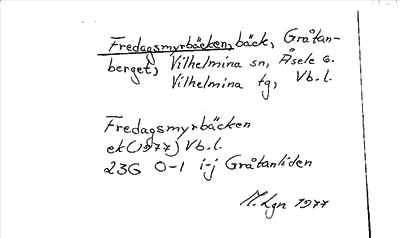 Fredagsmyrbäcken, bäck, Gråtan-
berget, Vilhelmina sn, Åsele G.
Vilhelmina tg, Vb.l.
Fredagsmyrbäcken
ek (1977) Vb.l.
23G 0-1 i-j Gråtanliden
M. Lgn 1977